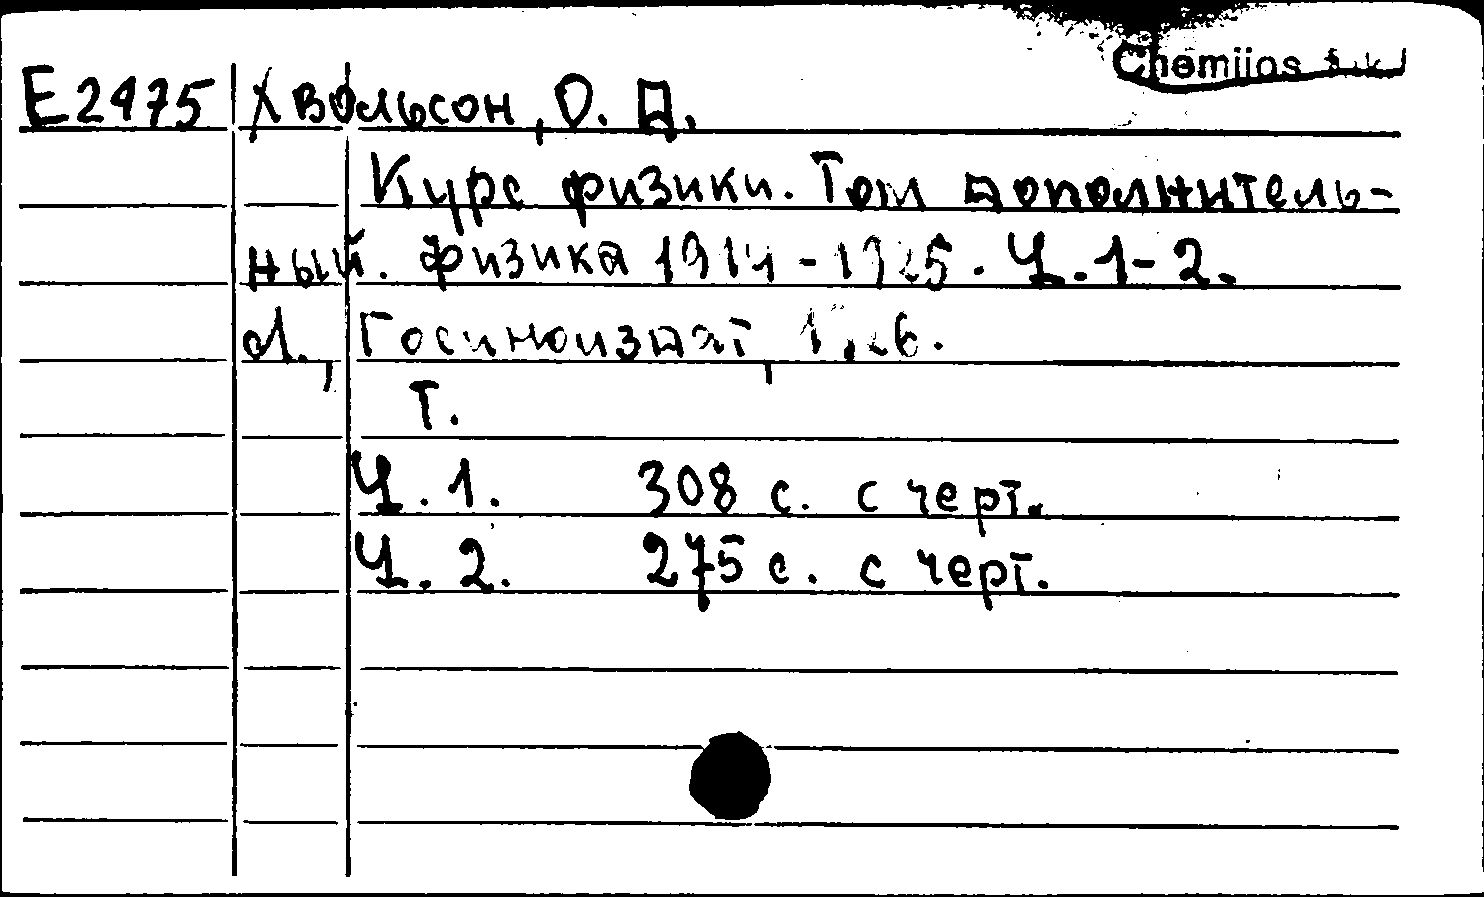 Chemijos
E2475 Хвольсон, О. Д.
Курс физики. Том дополнитель-
ный. Физика 1914-1925. Ч.1-2.
Л., Госиноиздат, 1926.
т.
Ч. 1. 308 с. с черт.
Ч. 2. 275 с. с черт.